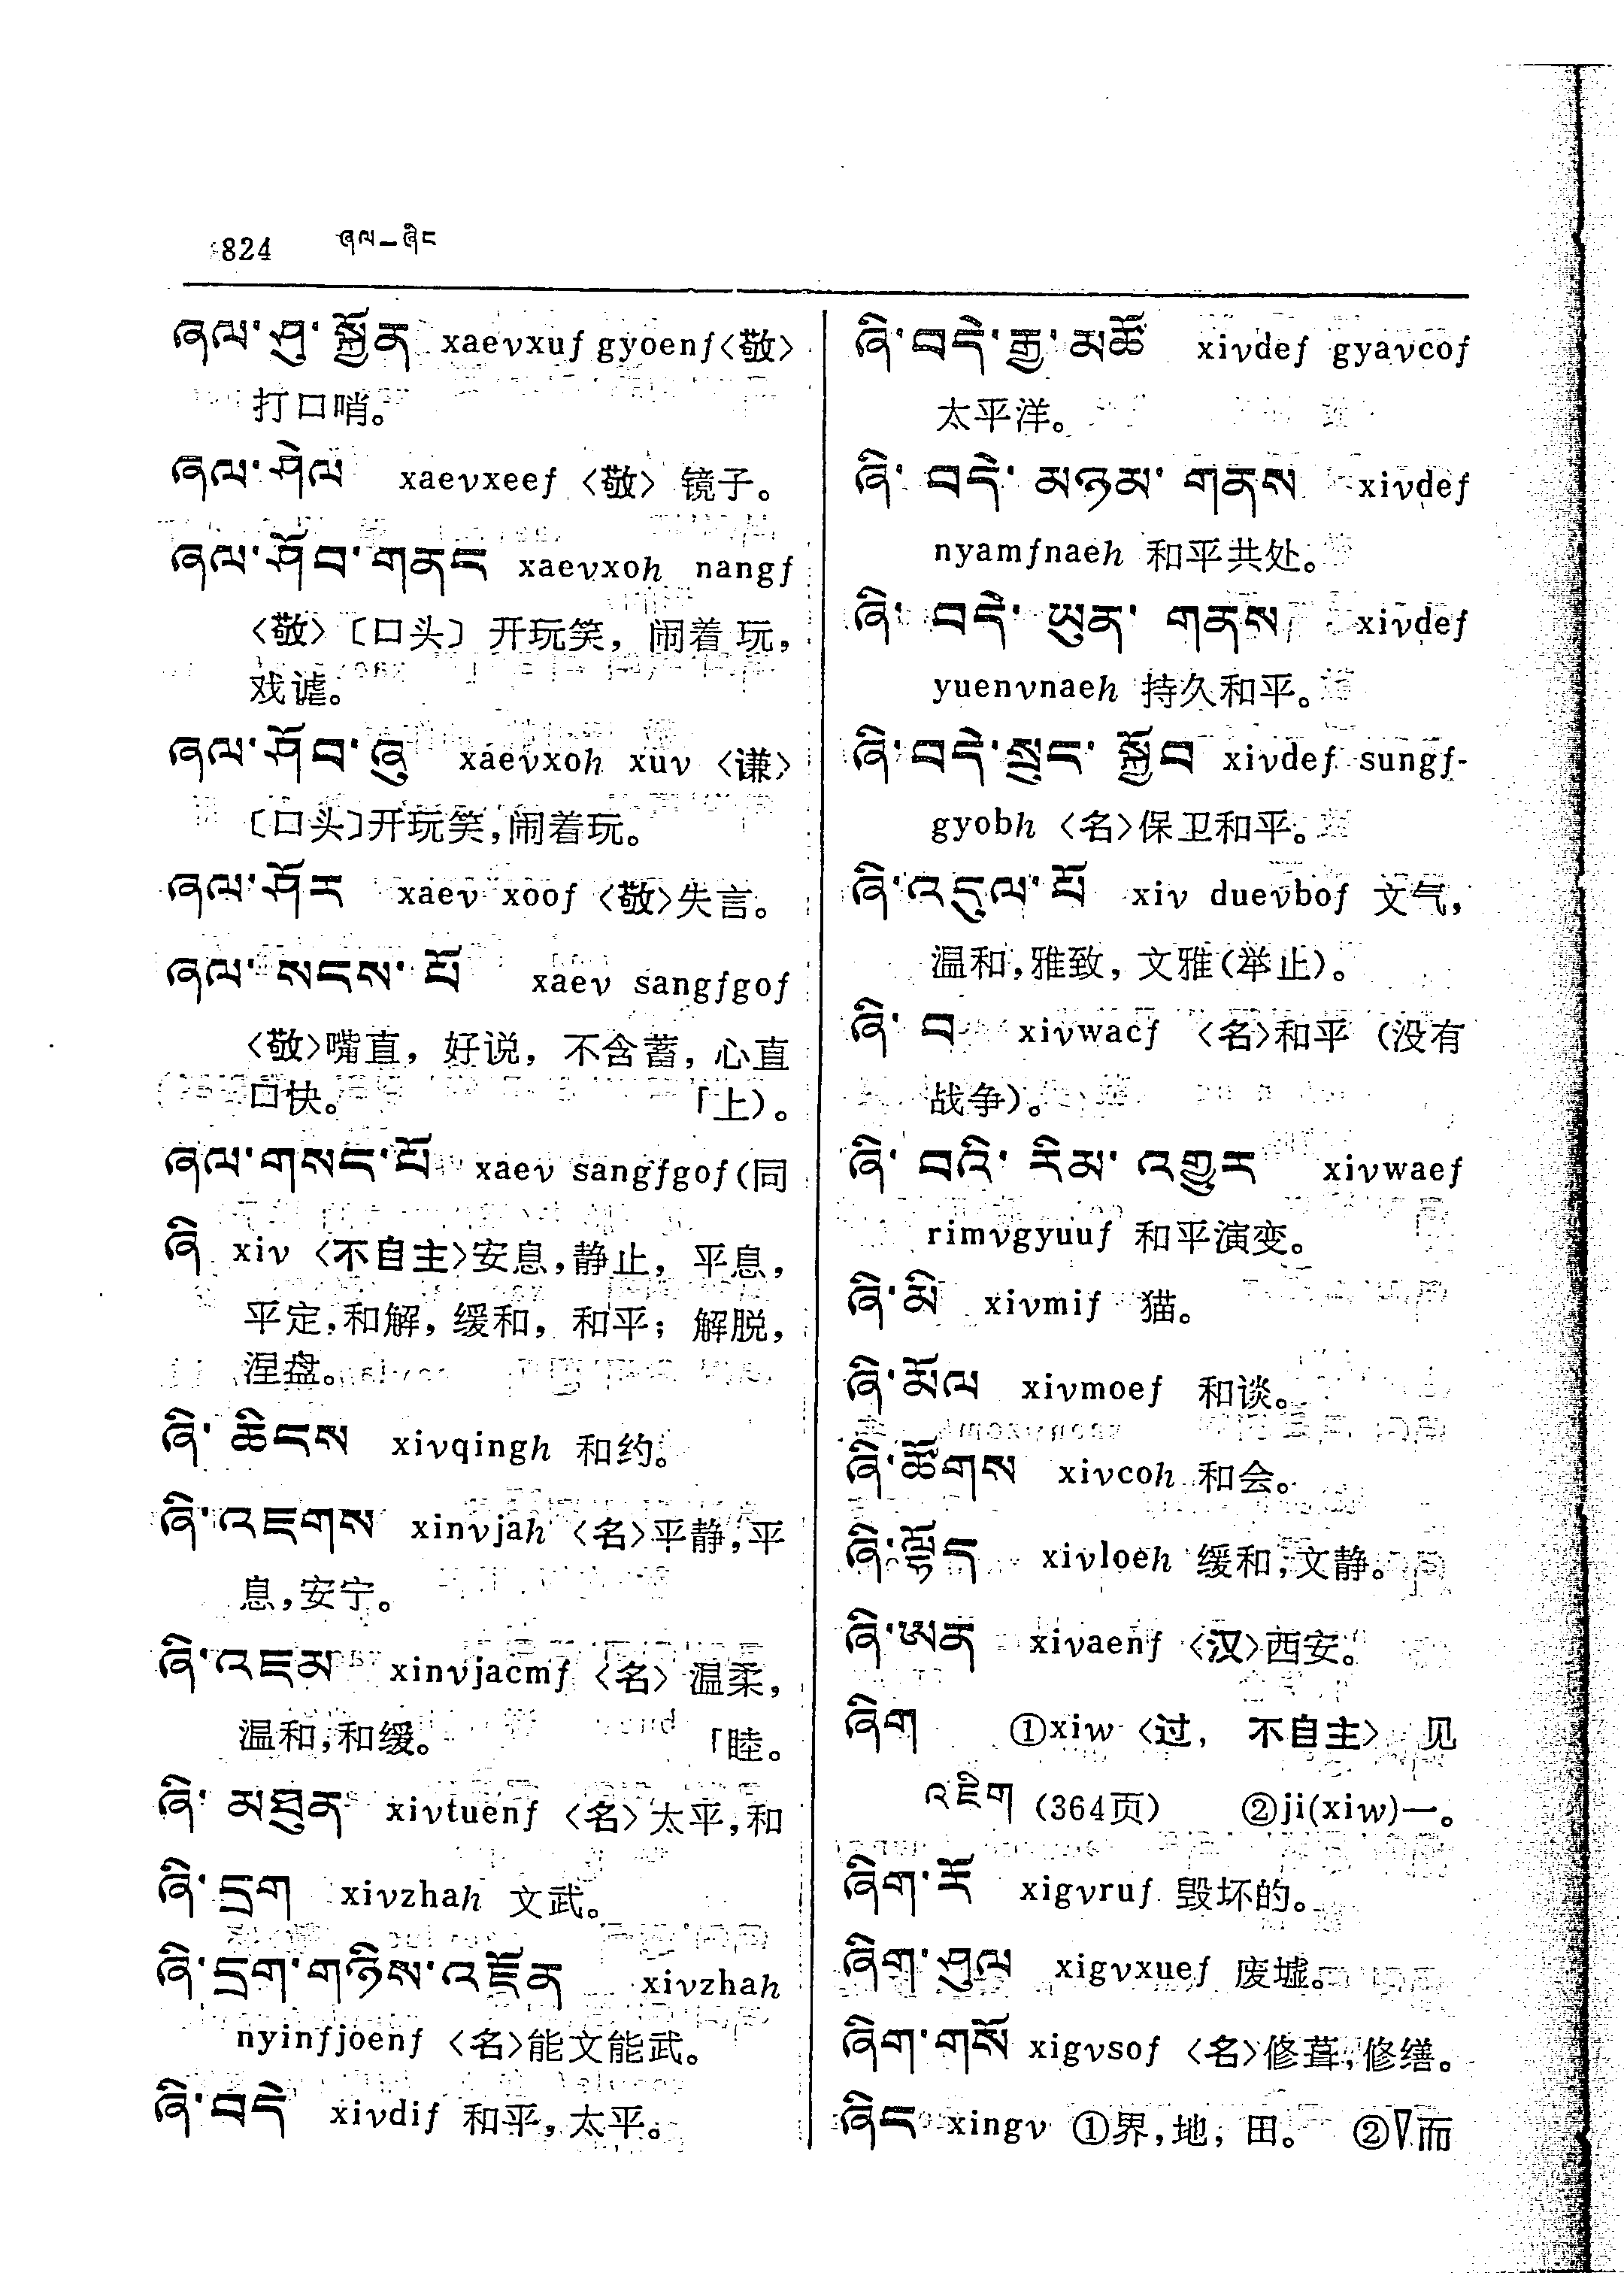 824 ཞལ–ཞིང
ཞལ་ཤུ་སྐྱོན xaevxuf gyoenf〈敬〉
打口哨。
ཞལ་ཤེལ xaevxeef〈敬〉镜子。
ཞལ་ཤོབ་གནང xaevxoh nangf
〈敬〉〔口头〕开玩笑，闹着玩，
戏谑。
ཞལ་ཤོབ་ཞུ xaevxoh xuv〈谦〉
〔口头〕开玩笑，闹着玩。
ཞལ་ཤོར xaev xoof〈敬〉失言。
ཞལ་སངས་པོ xaev sangfgof
〈敬〉嘴直，好说，不含蓄，心直
口快。 「上）。
ཞལ་གསང་པོ xaev sangfgof（同
ཞི xiv〈不自主〉安息，静止，平息，
平定，和解，缓和，和平；解脱，
涅盘。
ཞི་ཆིངས xivqingh 和约。
ཞི་འཇགས xinvjah〈名〉平静，平
息，安宁。
ཞི་འཇམ xinvjacmf〈名〉温柔，
温和，和缓。 「睦。
ཞི་མཐུན xivtuenf〈名〉太平，和
ཞི་དྲག xivzhah 文武。
ཞི་དྲག་གཉིས་འཛོན xivzhah
nyinfjoenf〈名〉能文能武。
ཞི་བདེ xivdif 和平，太平。
ཞི་བདེ་རྒྱ་མཚོ xivdef gyavcof
太平洋。
ཞི་བདེ་མཉམ་གནས xivdef
nyamfnaeh 和平共处。
ཞི་བདེ་ཡུན་གནས xivdef
yuenvnaeh 持久和平。
ཞི་བདེ་སྲུང་སྐྱོབ xivdef sungf-
gyobh〈名〉保卫和平。
ཞི་འདུལ་པོ xiv duevbof 文气，
温和，雅致，文雅（举止）。
ཞི་བ xivwacf〈名〉和平（没有
战争）。
ཞི་བའི་རིམ་འགྱུར xivwaef
rimvgyuuf 和平演变。
ཞི་མི xivmif 猫。
ཞི་མོལ xivmoef 和谈。
ཞི་ཚོགས xivcoh 和会。
ཞི་ལྷོད xivloeh 缓和，文静。
ཞི་ཨན xivaenf〈汉〉西安。
ཞིག ①xiw〈过，不自主〉见
འཇིག（364页） ②ji(xiw)一。
ཞིག་རོ xigvruf 毁坏的。
ཞིག་ཤུལ xigvxuef 废墟。
ཞིག་གསོ xigvsof〈名〉修葺，修缮。
ཞིང xingv ①界，地，田。 ②▽而